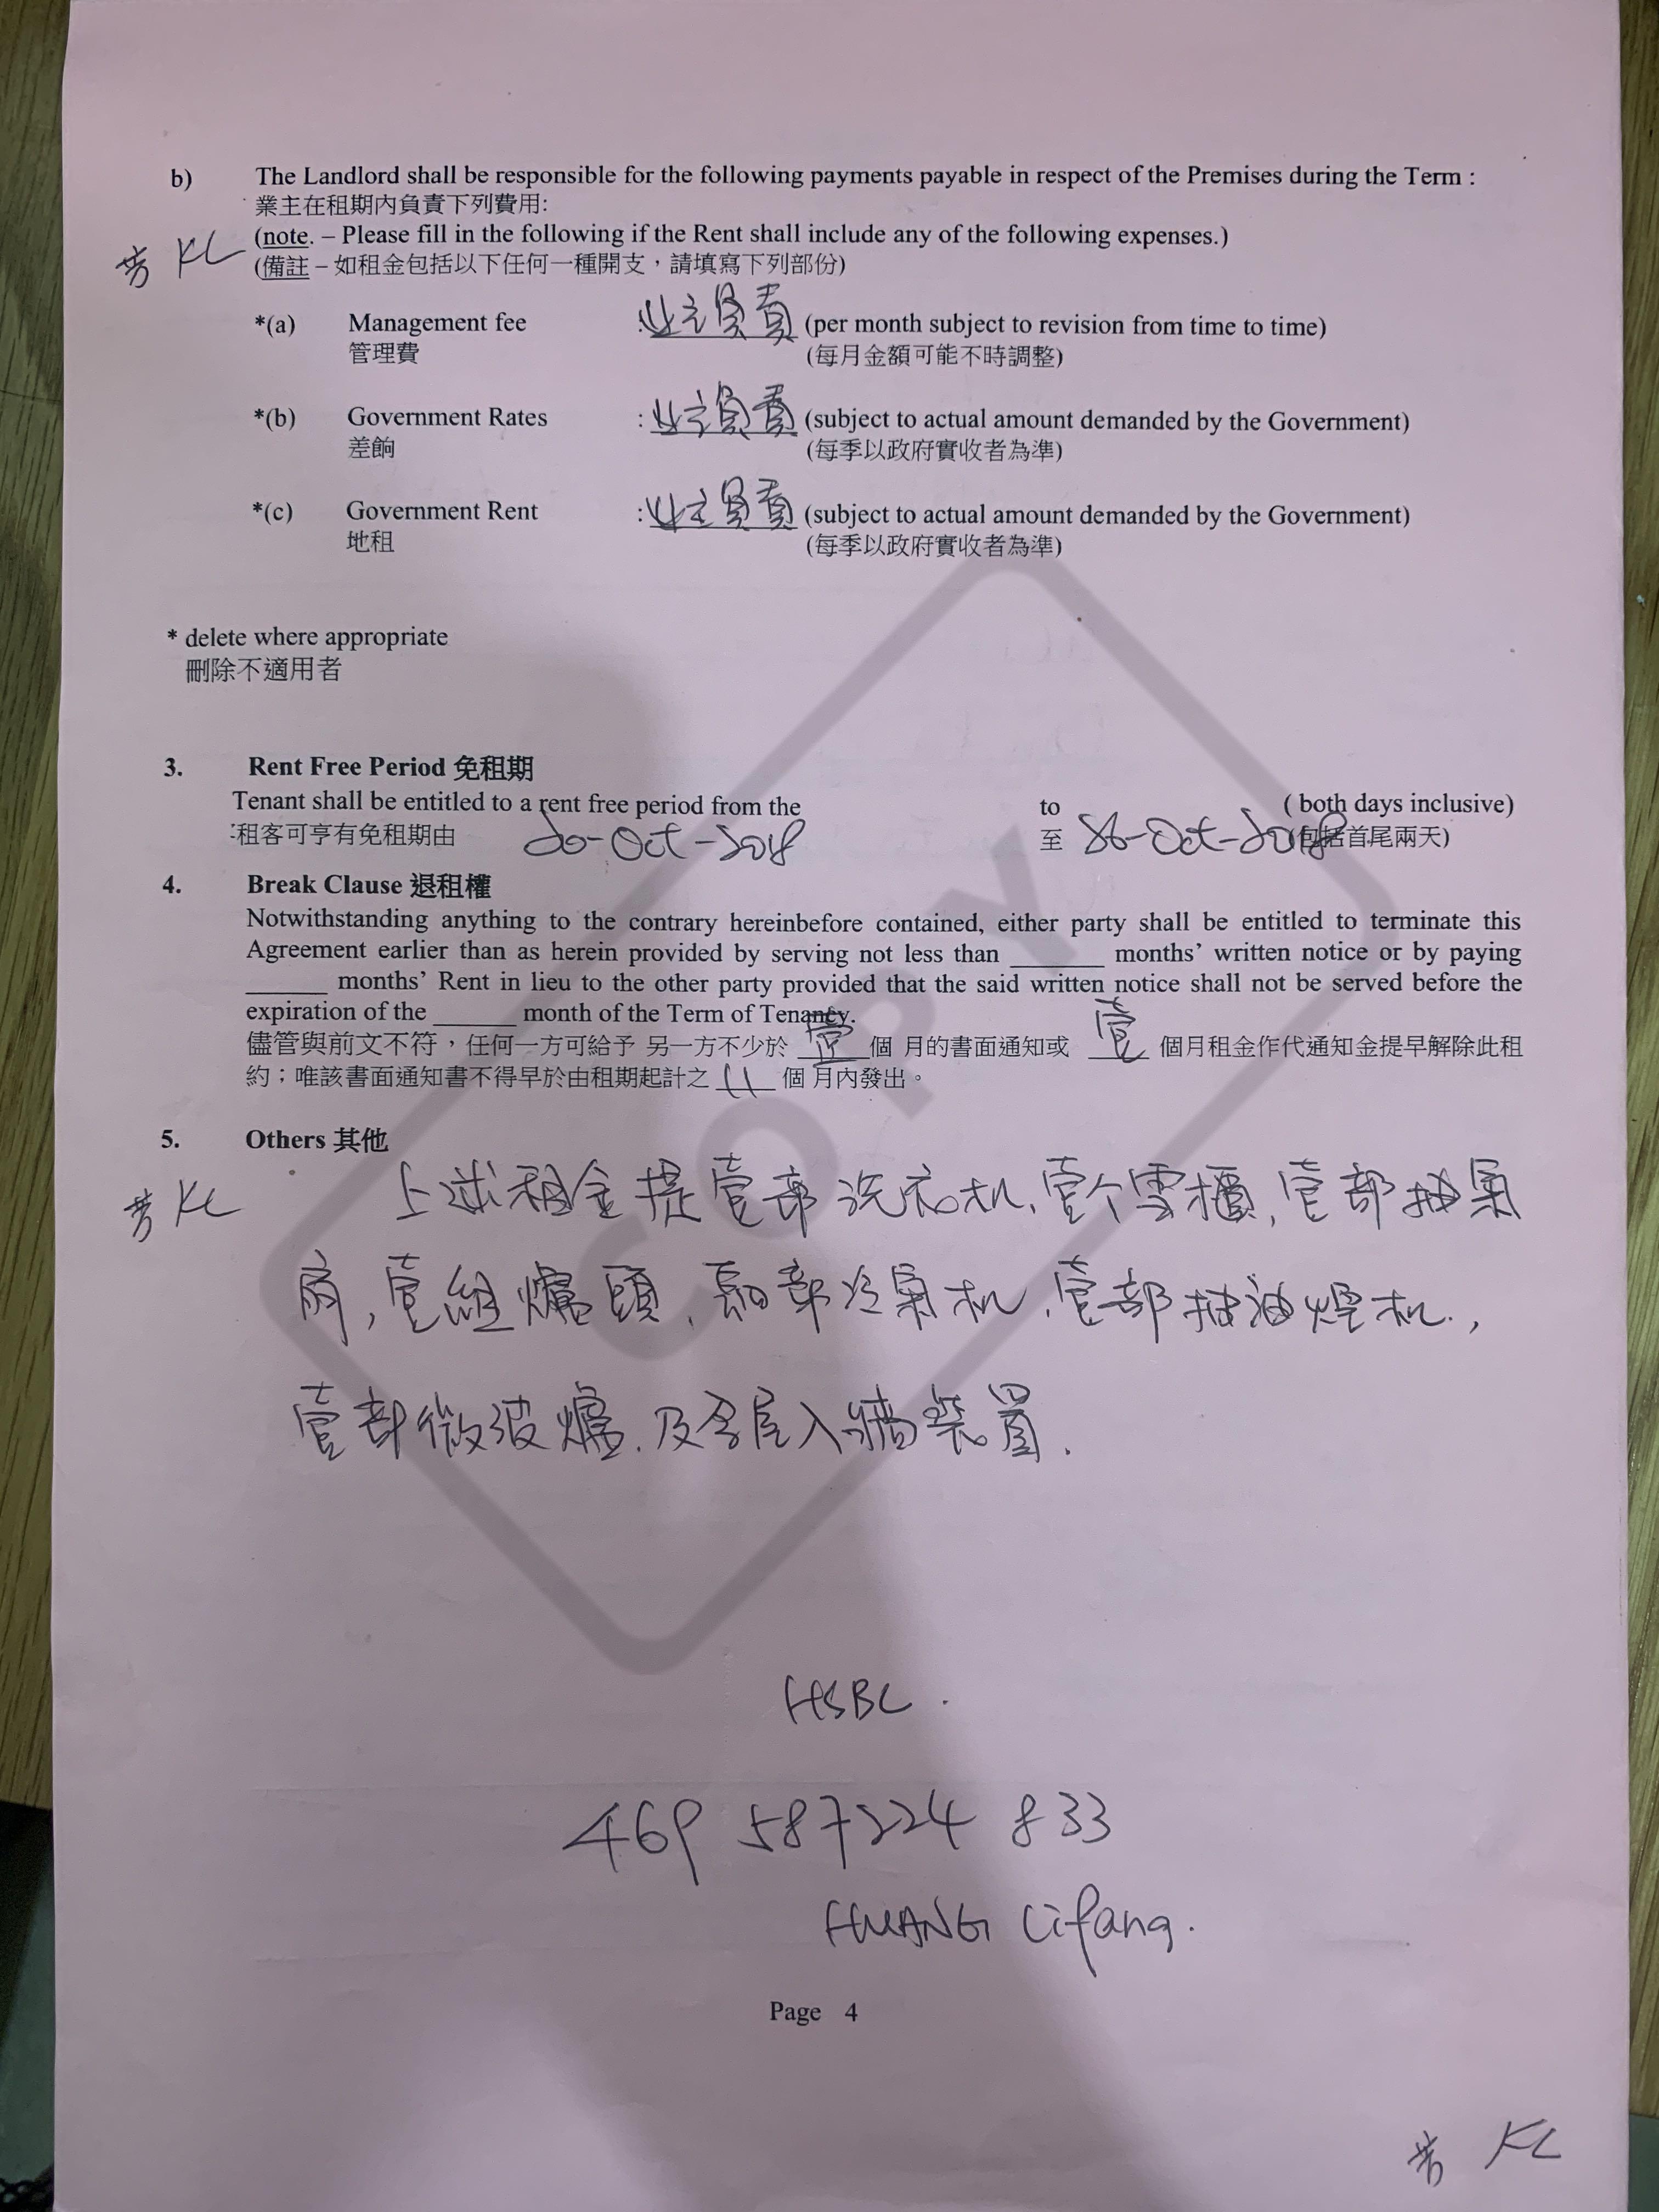 b) The Landlord shall be responsible for the following payments payable in respect of the Premises during the Term :
業主在租期內負責下列費用:
芳 KL (note. – Please fill in the following if the Rent shall include any of the following expenses.)
(備註 – 如租金包括以下任何一種開支，請填寫下列部份)
*(a) Management fee : 业主負責 (per month subject to revision from time to time)
管理費 (每月金額可能不時調整)
*(b) Government Rates : 业主負責 (subject to actual amount demanded by the Government)
差餉 (每季以政府實收者為準)
*(c) Government Rent : 业主負責 (subject to actual amount demanded by the Government)
地租 (每季以政府實收者為準)
* delete where appropriate
刪除不適用者
3. Rent Free Period 免租期
Tenant shall be entitled to a rent free period from the to ( both days inclusive)
租客可享有免租期由 20-Oct-2018 至 26-Oct-2018 (包括首尾兩天)
4. Break Clause 退租權
Notwithstanding anything to the contrary hereinbefore contained, either party shall be entitled to terminate this
Agreement earlier than as herein provided by serving not less than ______ months' written notice or by paying
______ months' Rent in lieu to the other party provided that the said written notice shall not be served before the
expiration of the ______ month of the Term of Tenancy.
儘管與前文不符，任何一方可給予 另一方不少於 壹 個 月的書面通知或 壹 個月租金作代通知金提早解除此租
約；唯該書面通知書不得早於由租期起計之 11 個 月內發出。
5. Others 其他
芳 KL 上述租金提壹部洗衣机,壹个雪櫃,壹部抽氣
扇,壹組爐頭,部冷氣机,壹部抽油煙机.,
壹部微波爐.及全屋入牆裝置.
COPY
HSBC.
469 587224 833
HUANG Lifang.
Page 4
芳 KL